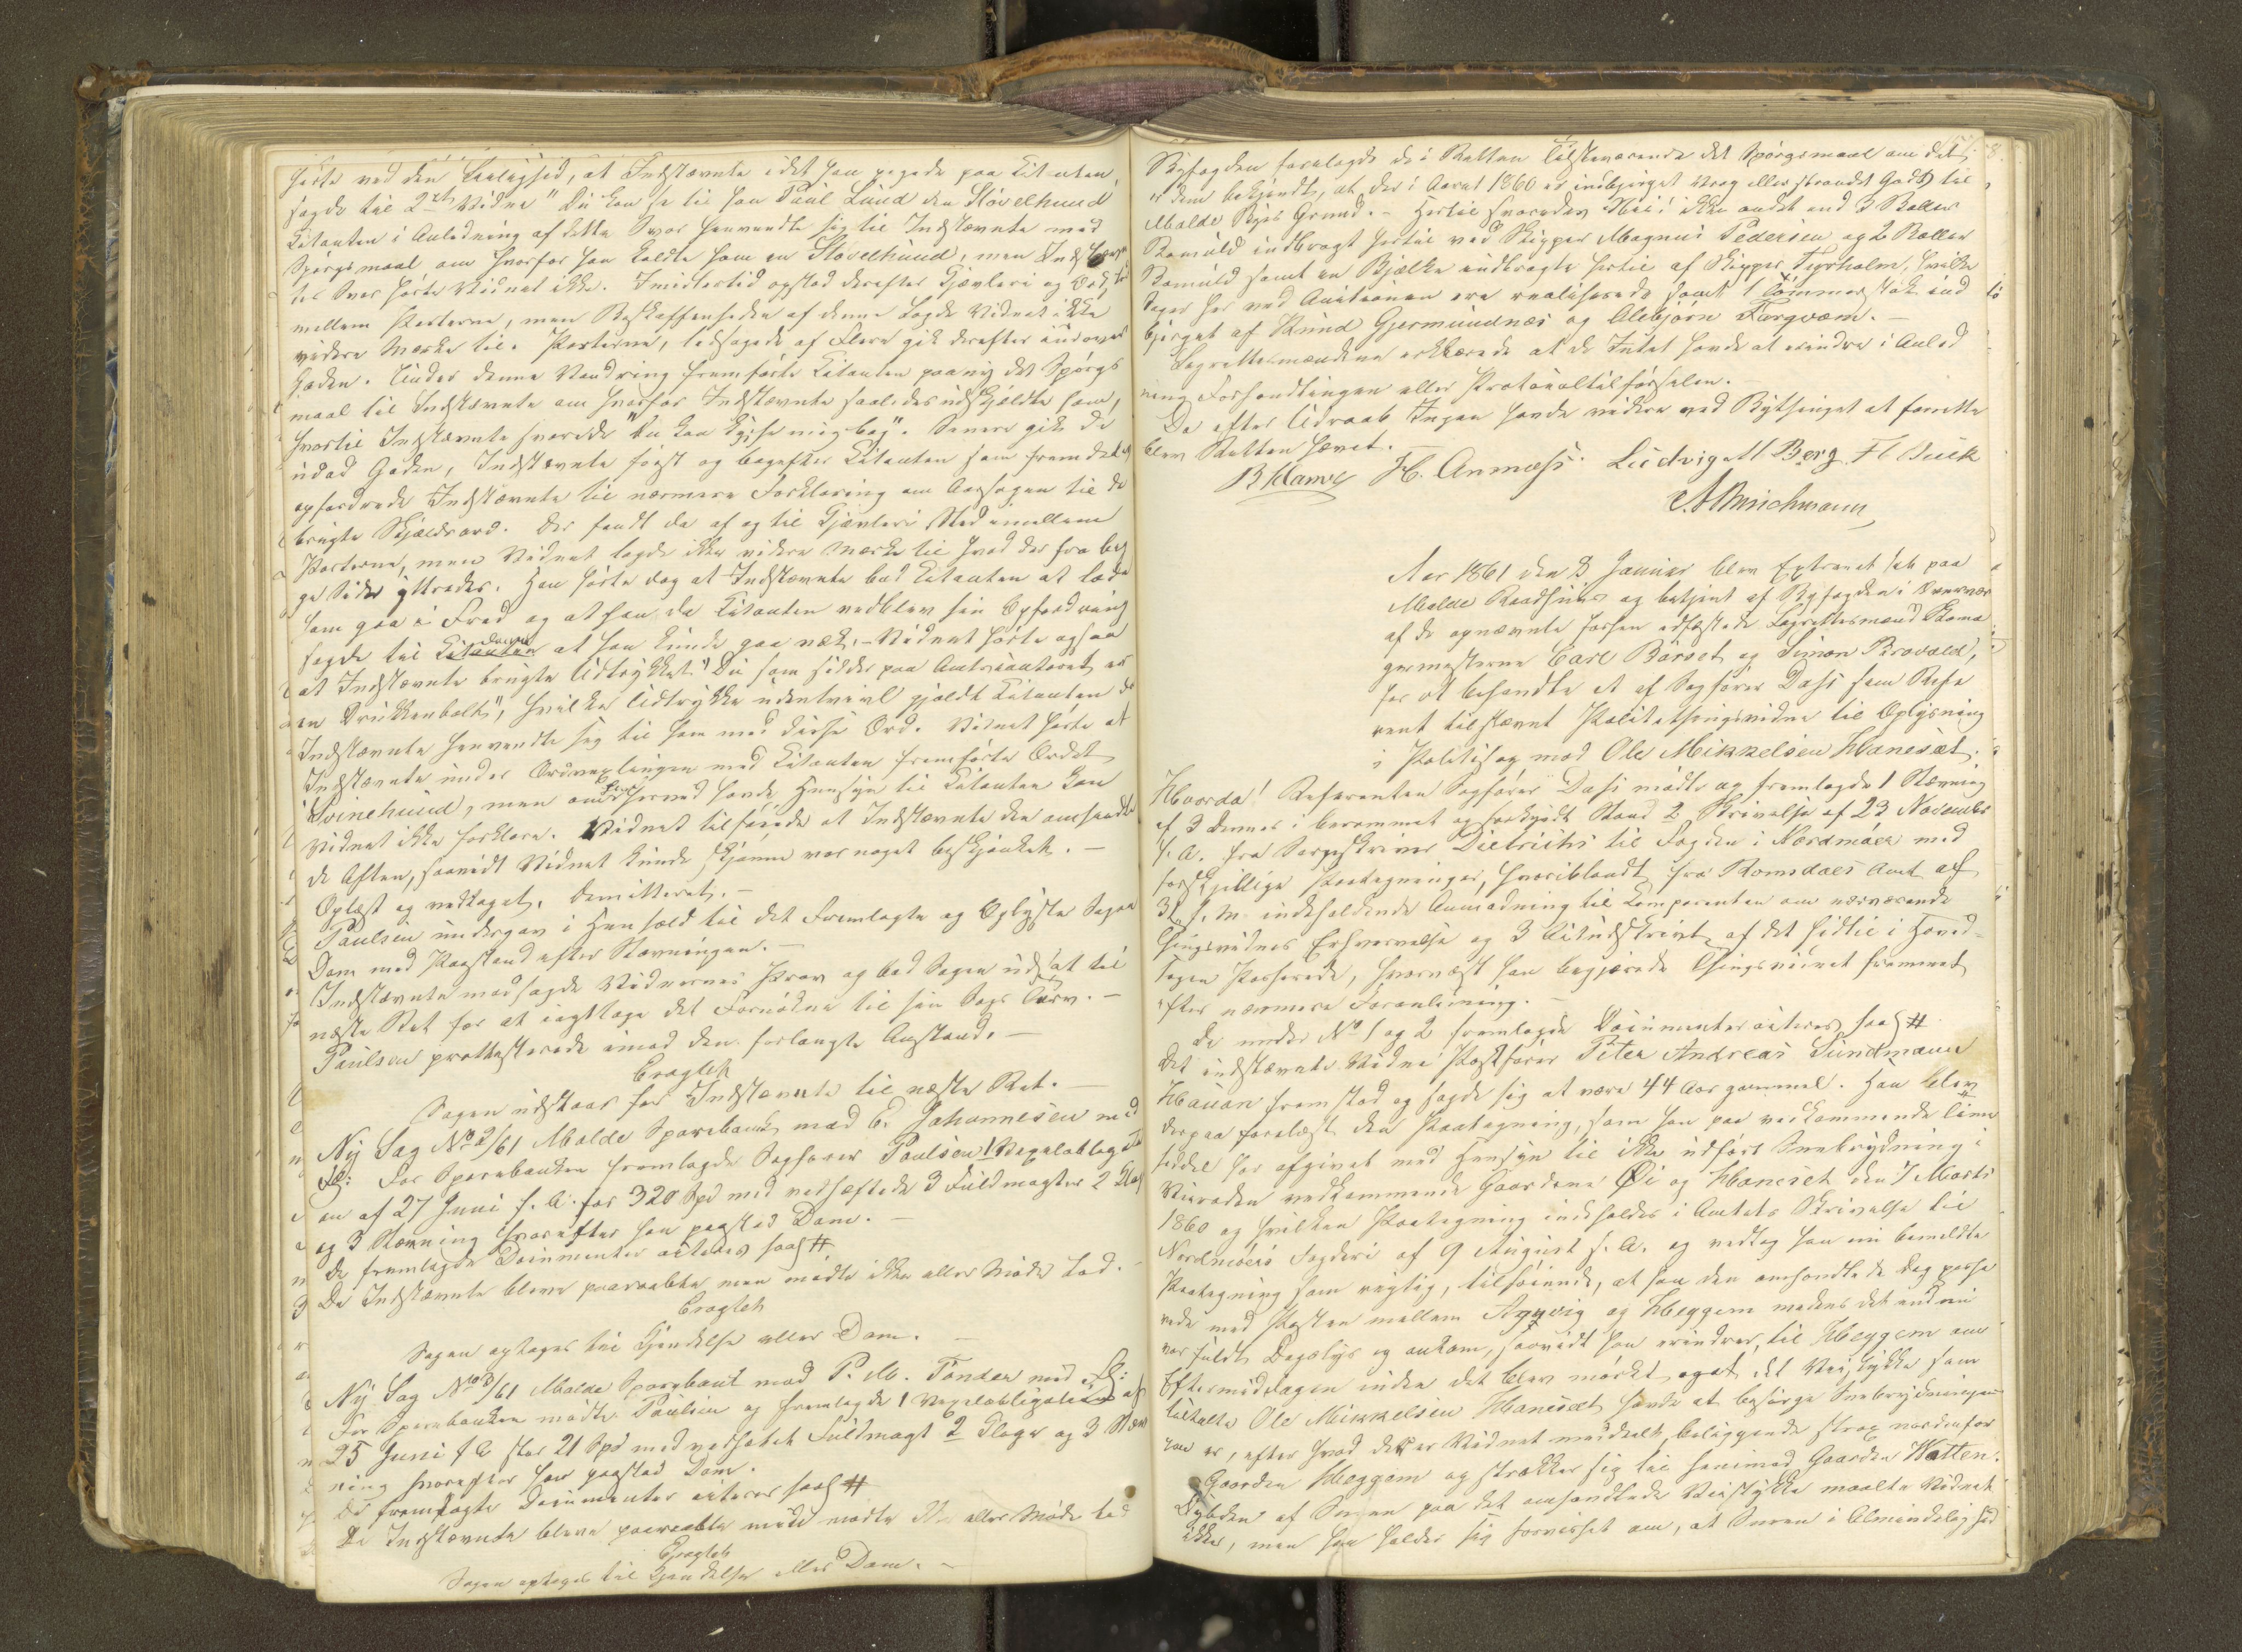 hørte ved den Leilighed, at Indstævnte idet han pegede paa Citanten
sagde til 2det Vidne "Du kan se til han Paul Lund den Støvelhund
Citanten i Anledning af dette Svar henvendte sig til Indstævnte med
Spørgsmaal om hvorfor han kaldte ham en Støvelhund, men Indstævn
tes Svar hørte Vidnet ikke. Imidlertid opstod derefter Kjævleri og
mellem Parterne, men Beskaffenheden af denne lagde Vidnet ikke
videre Mærke til. Parterne, ledsagede af Flere gik derefter
Gaden. Under denne Vandring fremførte Citanten paany det Spørgs
maal til Indstævnte om hvorfor Indstævnte saaledes udskjældte ham,
hvortil Indstævnte svarede "Du kan kysse mig bag". Senere gik de
udad Gaden, Indstævnte først og bagefter Citanten som fremdeles
opfordrede Indstævnte til nærmere Forklaring om Aarsagen til de
brugte Skjældsord. Der fandt da af og til Kjævleri Sted imellem
Parterne, men Vidnet lagde ikke videre Mærke til hvad der fra beg
ge Sider yttredes. Han hørte dog at Indstævnte bad Citanten at lade
ham gaa i Fred og at han da Citanten vedblev sin Opfordring
sagde til Citanten at han kunde gaa væk. - Vidnet hørte ogsaa
at Indstævnte brugte Udtrykket "Du som sidder paa Amtscontoret er
en Drukkenbolt", hvilke Udtrykke udentvivl gjaldt Citanten da
Indstævnte henvendte sig til ham med disse Ord. Vidnet hørte at
Indstævnte under Ordvexlingen med Citanten fremførte Ordet
"Svinehund", men om han herved havde Hensyn til Citanten kan
Vidnet ikke forklare. Vidnet tilføiede at Indstævnte den omhandle
de Aften, saavidt Vidnet kunde skjønne var noget beskjænket. -
Oplæst og vedtaget. Demitteret. -
Paulsen indgav i Henhold til det Fremlagte og Oplyste Sagen
Dom med Paastand efter Stævningen. -
Indstævnte modsagde Vidnernes Prov og bad Sagen udsat til
næste Ret for at iagttage det Fornødne til sin Sags Tarv. -
Paulsen protesterede imod den forlangte Anstand. -
Eragtet
Sagen udstaar for Indstævnte til næste Ret. -
Ny Sag No 2/61 Molde Sparebank mod E. Johannesen med
Fl: For Sparebanken fremlagde Sagfører Paulsen 1 Vexelobligati
on af 27 Juni f. A. for 320 Spd med vedhæftede 3 Fuldmagter 2 Klage
og 3 Stævning hvorefter han paastod Dom. -
De fremlagte Documenter acteres saal. #
De Indstævnte bleve paaraabte men mødte ikke eller Møde lod. -
Eragtet
Sagen optages til Kjendelse eller Dom. -
Ny Sag No 3/61 Molde Sparebank mod P. M. Tønder med Fl:
For Sparebanken mødte Paulsen og fremlagde 1 Vexelobligation af
25 Juni f A stor 21 Spd med vedheftet Fuldmagt 2 Klage og 3 Stæv
ning hvorefter han paastod Dom.
De fremlagte Documenter acteres saal #
De Indstævnte bleve paaraabte men mødte ikke eller Møde lod
Eragtet
Sagen optages til Kjendelse eller Dom. -
Byfogden forelagde de i Retten Tilstedeværende det Spørgsmaal om det
er dem bekjendt, at der i Aaret 1860 er indbjerget Vrag eller strandet Gods til
Molde Byes Grund. - Hertil svaredes Nei! ikke andet end 3 Baller
Bomuld indbragt hertil ved Skipper Magnus Pedersen og 2 Baller
Bomuld samt en Bjælke indbragte hertil af Skipper Fyrholm, hvilke
Sager her ved Auctionen ere realiserede samt 1 Tømmerstok ind
bjerget af Knud Gjermundnæs og Alebjørn Fargvam. -
Lagrettesmændene erklærede at de Intet havde at erindre i Anled
ning Forhandlingen eller Protocoltilførselen.
Da efter Udraab Ingen havde videre ved Bythinget at forrette
blev Retten hævet. -
H. Anmess Ludvig M Berg Fl Buck
Aar 1861 den 8 Januar blev Extraret sat paa
Molde Raadhuus og betjent af Byfogden i Overvær
af de opnævnte forhen edfæstede Lagrettesmænd Skoma
germesterne Carl Bårset og Simon Brovold,
for at behandle et af Sagfører Dass som Refe
rent tilstævnt Politithingsvidne til Oplysning
i Politisag mod Ole Mikkelsen Hanesæt.
Hvorda! Referenten Sagfører Dass mødte og fremlagde 1 Stævning
af 3 dennes i berammet og forkyndt Stand 2 Skrivelse af 23 November
f. A. fra Sorenskriver Dietrichs til Fogden i Nordmøer med
forskjellige Paategninger, hvoriblandt fra Romsdals Amt af
31 f. M. indeholdende Anmodning til Comparenten om nærværende
Thingsvidnes Erhvervelse og 3 Udskrivt af det hidtil i Hoved-
sagen Passerede, hvornæst han begjærede Thingsvidnet fremmet
efter nærmere Foranledning. -
De under No 1 og 2 fremlagde Documenter acteres saal #
Det indstævnte Vidne Postfører Peter Andreas Sundmann
Hauan fremstod og sagde sig at være 44 Aar gammel. Han blev
derpaa forelæst den Paategning, som han paa vedkommende Time
seddel har afgivet med Hensyn til ikke udført Snebrydning i
Veiroden vedkommende Gaardene Øi og Hanesæt den 7 Marts
1860 og hvilken Paategning indeholdes i Amtets Skrivelse til
Nordmøers Fogderi af 9 August f. A. og vedtog han nu bemeldte
Paategning som rigtig, tilføiende, at han den omhandlede Dag passe
rede med Posten mellem Angvig og Heggem medens det endnu
var fuldt Dagslys og ankom, saavidt han erindrer, til Heggem om
Eftermiddagen inden det blev mørkt, og at det Veistykke som
tiltalte Ole Mikkelsen Hanesæt havde at besørge Snebrydningen
paa er, efter hvad der er Vidnet meddelt, beliggende strax nordenfor
Gaarden Heggem og strækker sig til henimod Gaarden Watten.
Dybden af Sneen paa det omhandlede Veistykke maalte Vidnet
ikke, men han holder sig forvisset om, at Sneen i Almindelighed